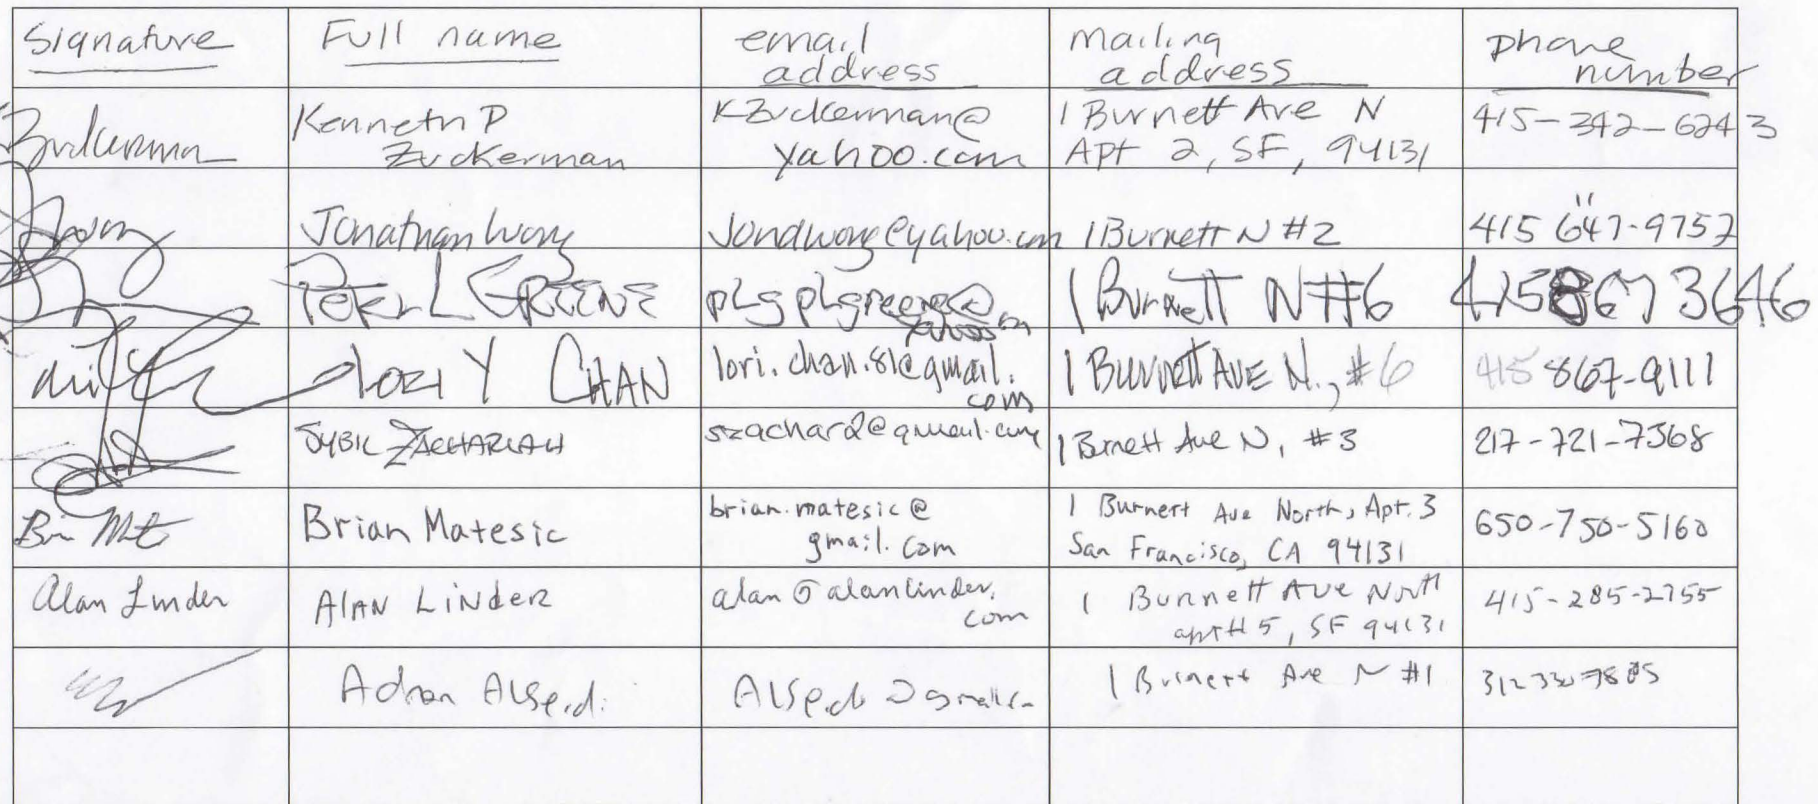 Signature
Full name
email
address
mailing
address
phone
number
Zuckerman
Kenneth P
Zuckerman
KZuckerman@
yahoo.com
1 Burnett Ave N
Apt 2, SF, 94131
415-342-6243
Jonathan Wong
Jondwong@yahoo.com
1 Burnett N #2
415 647-9757
Peter L GREENE
1 Burnett N #6
415 867 3646
LORI Y CHAN
lori.chan.81@gmail.
com
1 Burnett AVE N., #6
415 867-9111
SYBIL ZACHARIAH
szachar2@gmail.com
1 Burnett Ave N, #3
217-721-7368
Brian Matesic
brian.matesic@
gmail.com
1 Burnett Ave North, Apt. 3
San Francisco, CA 94131
650-750-5160
Alan Linder
ALAN LINDER
alan@alanlinder.
com
1 Burnett Ave North
apt #5, SF 94131
415-285-2755
1 Burnett Ave N #1